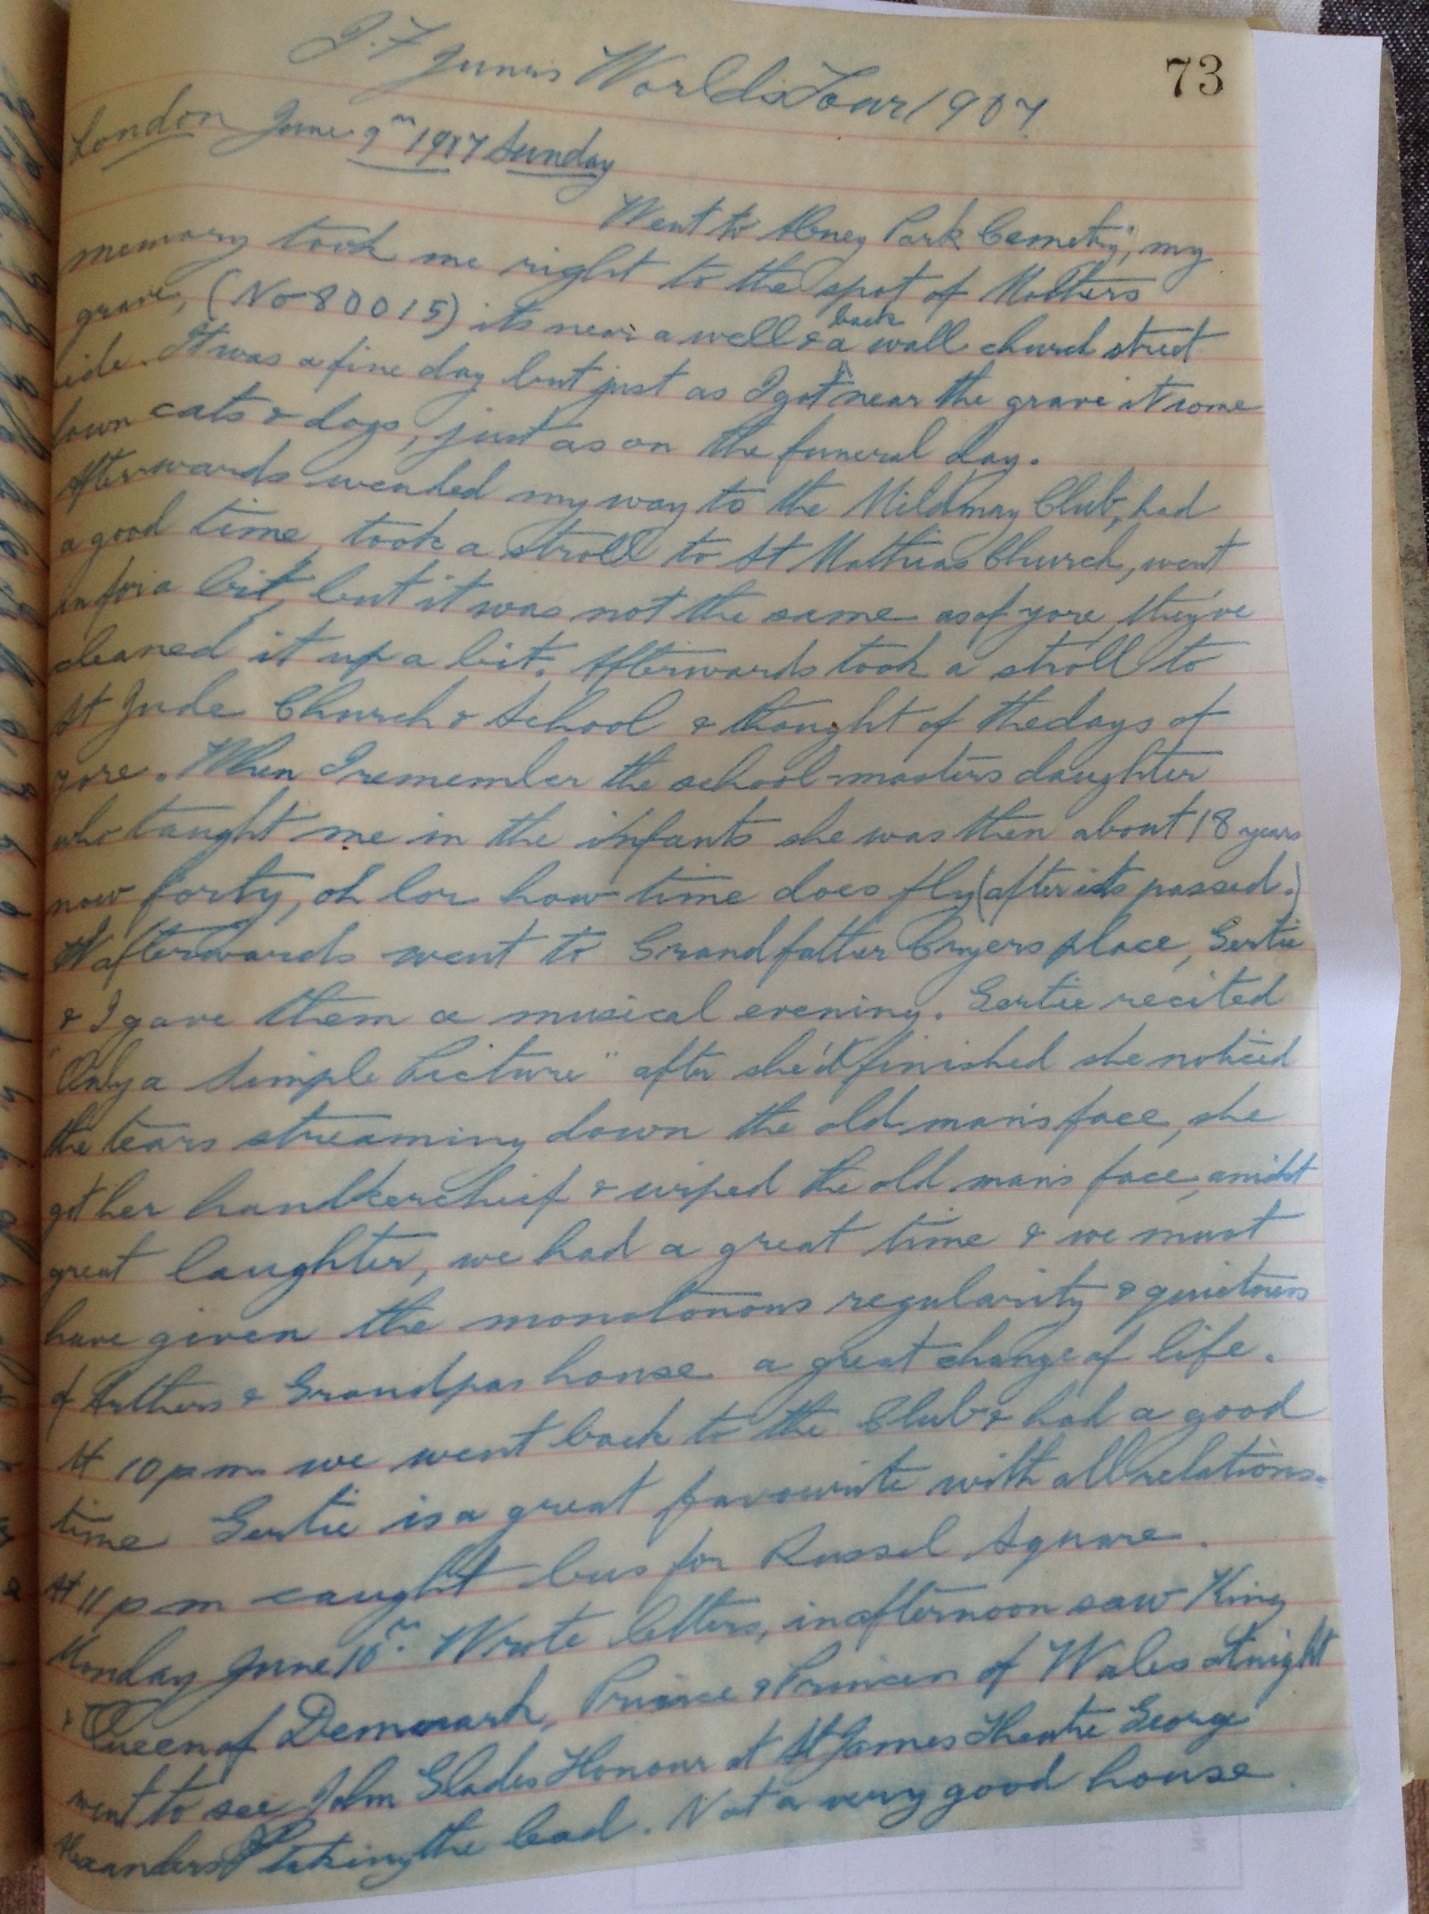 73
J. F. Junns Worlds Tour 1907.
London June 9th 1907 Sunday
Went to Abney Park Cemetry, my
memory took me right to the spot of Mothers
grave, (No 80015) its near a well & a back wall church street
side. It was a fine day but just as I got near the grave it come
down cats & dogs, just as on the funeral day.
Afterwards wended my way to the Mildmay Club, had
a good time, took a stroll to St Mathias Church, went
in for a bit, but it was not the same as of yore, they've
cleaned it up a bit. Afterwards took a stroll to
St Jude Church & School & thought of the days of
yore. When I remember the school-masters daughter
who taught me in the infants she was then about 18 years
now forty, oh lor how time does fly (after its passed.)
afterwards went to Grandfather Cryers place, Gertie
& I gave them a musical evening. Gertie recited
"Only a Simple Picture" after she'd finished she noticed
the tears streaming down the old man's face, she
got her handkerchief & wiped the old man's face, amidst
great laughter, we had a great time & we must
have given the monotonous regularity & quietness
of Arthers & Grandpas house a great change of life.
At 10 p m we went back to the Club & had a good
time Gertie is a great favourite with all relations.
At 11 p m caught bus for Russel Square.
Monday June 10th. Wrote letters, in afternoon saw King
& Queen of Denmark, Prince & Princess of Wales at night
went to see John Glades Honour at St James Theatre George
Alexanders taking the lead. Not a very good house